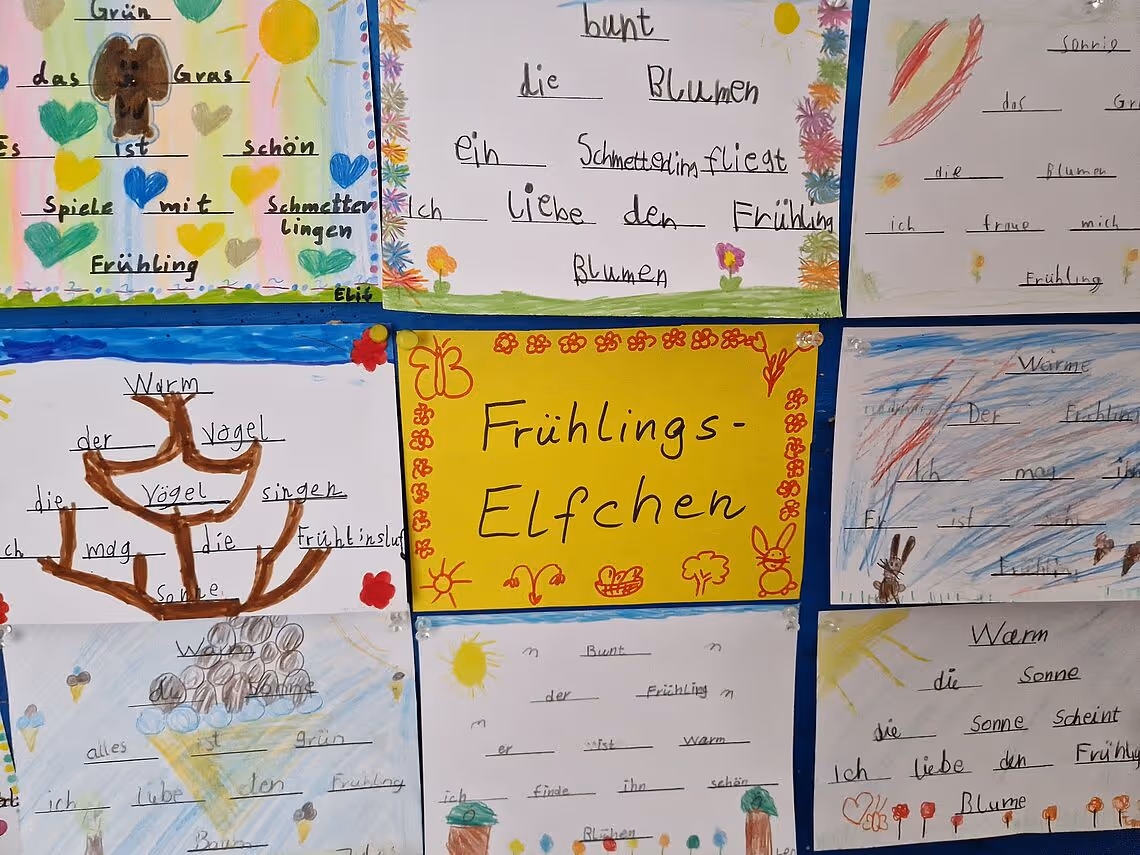 Grün
das Gras
Es ist schön
Spiele mit Schmetter
lingen
Frühling
Elif
bunt
die Blumen
ein Schmetterling fliegt
Ich liebe den Frühling
Blumen
sonnig
das Gr
die Blumen
ich freue mich
Frühling
Warm
der Vogel
die Vögel singen
ch mag die Frühlinsluf
Sonne
Frühlings-
Elfchen
Wärme
Der Frühlin
Ich mag ihn
Er ist
Frühling
Warm
die Sonne
alles ist grün
ich liebe den Fruhling
Baum
Bunt
der Frühling
er ist warm
ich finde ihn schön
Blühen
Warm
die Sonne
die Sonne Scheint
Ich liebe den Frühlig
Blume